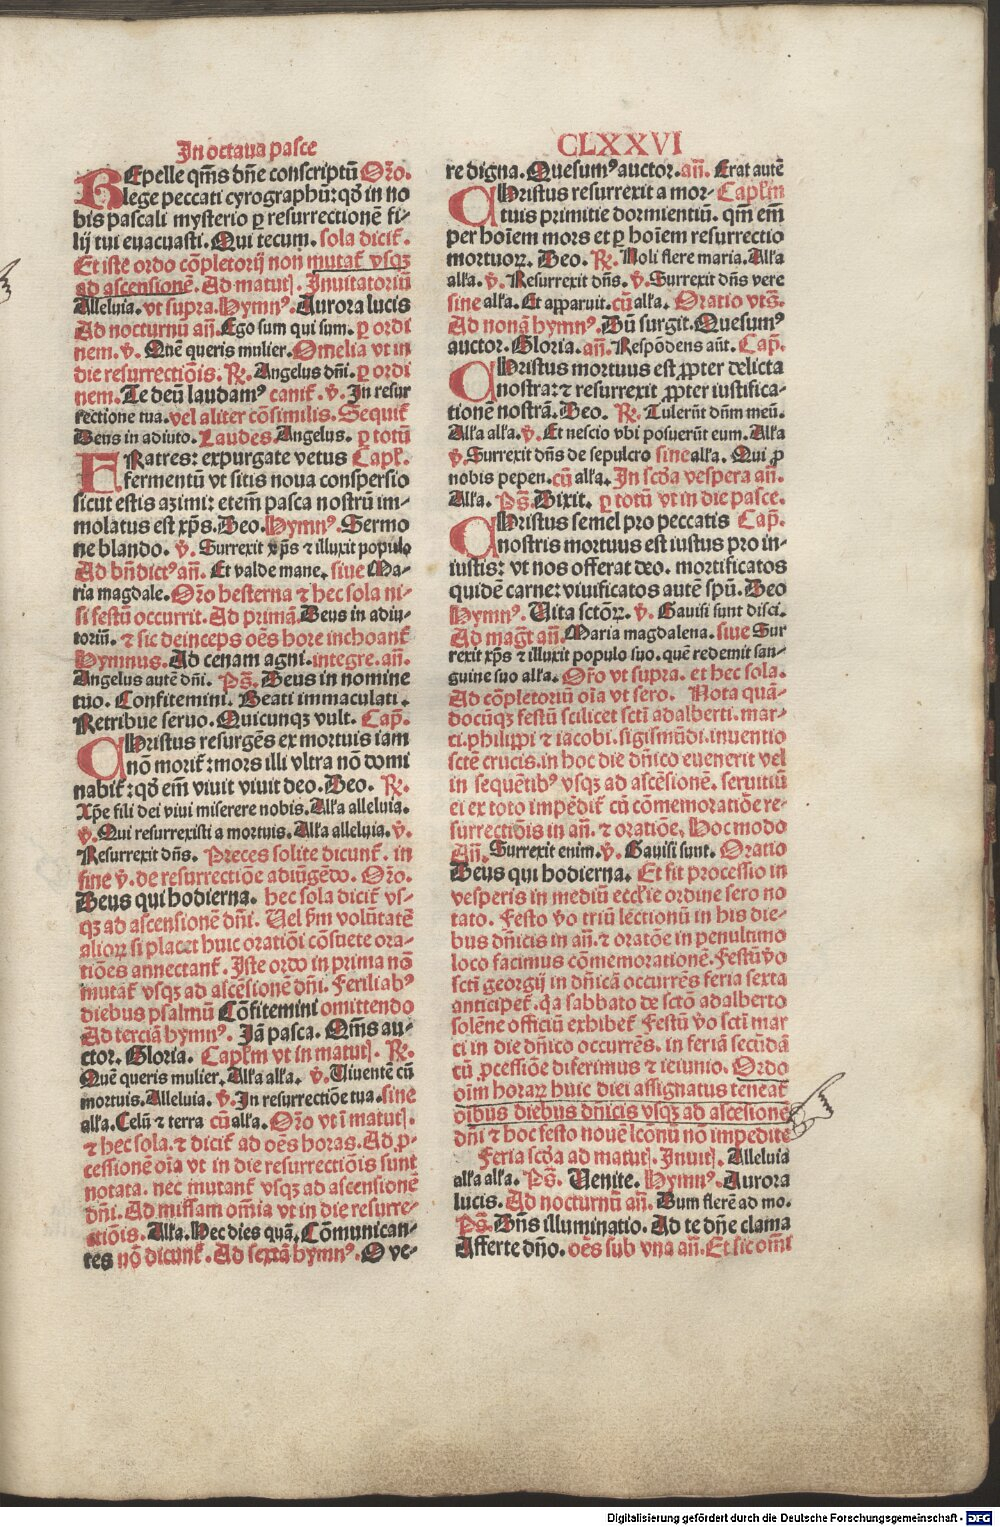 In octaua pasce
CLXXVI
REpelle qm̃s dñe conscriptũ Orõ.
lege peccati cyrographũ: qđ in no
bis pascali mysterio ꝑ resurrectionẽ fi-
lij tui euacuasti. Qui tecum. sola dicit̃.
Et iste ordo cõpletorij non mutat̃ vsqȝ
ad ascensionẽ. Ad matuť. Inuitatoriũ
Alleluia. vt supra. Hymnꝰ. Aurora lucis
Ad nocturnũ añ. Ego sum qui sum. ꝑ ordi
nem. v̊. Quẽ queris mulier. Omelia vt in
die resurrectiõis. R̃. Angelus dñi. ꝑ ordi
nem. Te deũ laudamꝰ canit̃. v̊. In resur
rectione tua. vel aliter cõsimilis. Sequit̃
Deus in adiuto. Laudes. Angelus. ꝑ totũ
FRatres: expurgate vetus Capl̃.
fermentũ vt sitis noua conspersio
sicut estis azimi: etem̃ pasca nostrũ im-
molatus est xp̃s. Deo. Hymnꝰ. Sermo
ne blando. v̊. Surrexit xp̃s ⁊ illuxit populo
Ad bñdictꝰ añ. Et valde mane. siue Ma-
ria magdale. Orõ hesterna ⁊ hec sola ni-
si festũ occurrit. Ad primã. Deus in adiu-
toriũ. ⁊ sic deinceps oẽs hore inchoant̃
Hymnus. Ad cenam agni. integre. añ.
Angelus autẽ dñi. Ps̃. Deus in nomine
tuo. Confitemini. Beati immaculati.
Retribue seruo. Quicunqȝ vult. Cap̃.
CHristus resurgẽs ex mortuis iam
nõ morit̃: mors illi vltra nõ domi
nabit̃: qđ em̃ viuit viuit deo. Deo. R̃.
Xp̃e fili dei viui miserere nobis. Alľa alleluia.
v̊. Qui resurrexisti a mortuis. Alľa alleluia. v̊.
Resurrexit dñs. Preces solite dicunt̃. in
fine v̊. de resurrectiõe adiũgẽdo. Orõ.
Deus qui hodierna. hec sola dicit̃ vs-
qȝ ad ascensionẽ dñi. Uel ẜm volũtatẽ
alioꝝ si placet huic oratiõi cõsuete ora-
tiões annectant̃. Iste ordo in prima nõ
mutat̃ vsqȝ ad ascẽsionẽ dñi. Ferilialibꝰ
diebus psalmũ Cõfitemini omittendo
Ad terciã hymnꝰ. Iã pasca. Qm̃s au-
ctor. Gloria. Capl̃m vt in matuť. R̃.
Quẽ queris mulier. Alľa alľa. v̊. Uiuentẽ cũ
mortuis. Alleluia. v̊. In resurrectiõe tua. sine
alľa. Celũ ⁊ terra cũ alľa. Orõ vt ĩ matuť.
⁊ hec sola. ⁊ dicit̃ ad oẽs horas. Ad ꝓ-
cessionẽ oĩa vt in die resurrectiõis sunt
notata. nec mutant̃ vsqȝ ad ascensionẽ
dñi. Ad missam om̃ia vt in die resurre-
ctiõis. Alľa. Hec dies quã. Cõmunican-
tes nõ dicunt̃. Ad sextã hymnꝰ. O ve-
re digna. Quesumꝰ auctor. añ. Erat autẽ
CHristus resurrexit a mor- Capl̃m
tuis primitie dormientiũ. qm̃ em̃
per hoĩem mors et ꝑ hoĩem resurrectio
mortuoꝝ. Deo. R̃. Noli flere maria. Alľa
alľa. v̊. Resurrexit dñs. v̊. Surrexit dñs vere
sine alľa. Et apparuit. cũ alľa. Oratio vts̃.
Ad nonã hymnꝰ. Dũ surgit. Quesumꝰ
auctor. Gloria. añ. Respõdens aũt. Cap̃.
CHristus mortuus est ꝓpter delicta
nostra: ⁊ resurrexit ꝓpter iustifica-
tionẽ nostrã. Deo. R̃. Tulerũt dñm meũ.
Alľa alľa. v̊. Et nescio vbi posuerũt eum. Alľa
v̊. Surrexit dñs de sepulcro sine alľa. Qui ꝓ
nobis pepen. cũ alľa. In scďa vespera añ.
Alľa. Ps̃. Dixit. ꝑ totũ vt in die pasce.
CHristus semel pro peccatis Cap̃.
nostris mortuus est iustus pro in-
iustis: vt nos offerat deo. mortificatos
quidẽ carne: viuificatos autẽ spũ. Deo
Hymnꝰ. Uita sctõꝝ. v̊. Gauisi sunt disci.
Ad mag̃t añ. Maria magdalena. siue Sur
rexit xp̃s ⁊ illuxit populo suo. quẽ redemit san-
guine suo alľa. Orõ vt supra. et hec sola.
Ad cõpletoriũ oĩa vt sero. Nota quã-
docũqȝ festũ scilicet sctĩ adalberti. mar-
ci. philippi ⁊ iacobi. sigismũdi. inuentio
sctẽ crucis. in hoc die dñico euenerit vel
in sequẽtibꝰ vsqȝ ad ascẽsionẽ. seruitiũ
ei ex toto impẽdit̃ cũ cõmemoratiõe re-
surrectiõis in añ. ⁊ oratiõe. Hoc modo
Añ. Surrexit enim. v̊. Gauisi sunt. Oratio
Deus qui hodierna. Et fit processio in
vesperis in mediũ eccľie ordine sero no
tato. Festo v̊o triũ lectionũ in his die-
bus dñicis in añ. ⁊ oratõe in penultimo
loco facimus cõmemorationẽ. Festũ v̊o
sctĩ georgij in dñicã occurrẽs feria sexta
anticipet̃. q̃a sabbato de sctõ adalberto
solẽne officiũ exhibet̃ Festũ v̊o sctĩ mar
ci in die dñico occurrẽs. in feriã secũdã
cũ ꝓcessiõe differimus ⁊ ieiunio. Ordo
oĩm horaꝝ huic diei assignatus teneat̃
oĩbus diebus dñicis vsqȝ ad ascẽsionẽ
dñi ⁊ hoc festo nouẽ lc̃onũ nõ impedite
Feria scďa ad matuť. Inuiť. Alleluia
alľa alľa. Ps̃. Uenite. Hymnꝰ. Aurora
lucis. Ad nocturnũ añ. Dum flerẽ ad mo.
Ps̃. Dñs illuminatio. Ad te dñe clama
Afferte dño. oẽs sub vna añ. Et sic om̃i
Digitalisierung gefördert durch die Deutsche Forschungsgemeinschaft - DFG